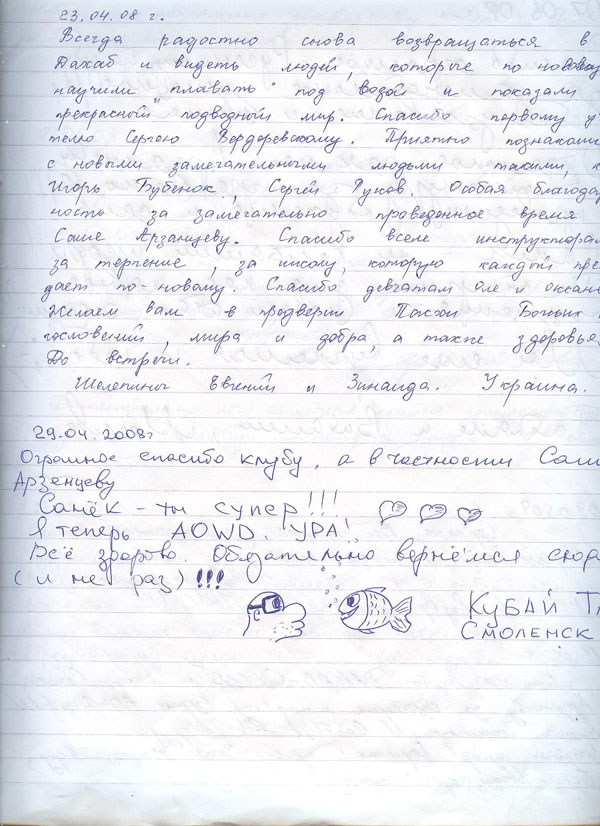 23.04.08 г.
Всегда радостно снова возвращаться в
Дахаб и видеть людей, которые по новому
научили "плавать" под водой и показали
прекрасный подводный мир. Спасибо первому у
телю Сергею Вердеревскому. Приятно познаком
с новыми замечательными людьми такими, к
Игорь Бубенок, Сергей Гуков. Особая благодар
ность за замечательно проведенное время
Саше Арзанцеву. Спасибо всем инструкторам
за терпение, за школу, которую каждый пре
дает по-новому. Спасибо девчатам Оле и Оксане
Желаем вам в предверии Пасхи Божьих
гословений, мира и добра, а также здоровья
До встречи.
Шелепины Евгений и Зинаида. Украина.
29.04.2008г
Огромное спасибо клубу, а в частности Саш
Арзенцеву
Санёк - ты супер!!!
Я теперь AOWD. УРА!
Всё здорово. Обязательно вернёмся сюда
(и не раз)!!!
Кубай Т
Смоленск